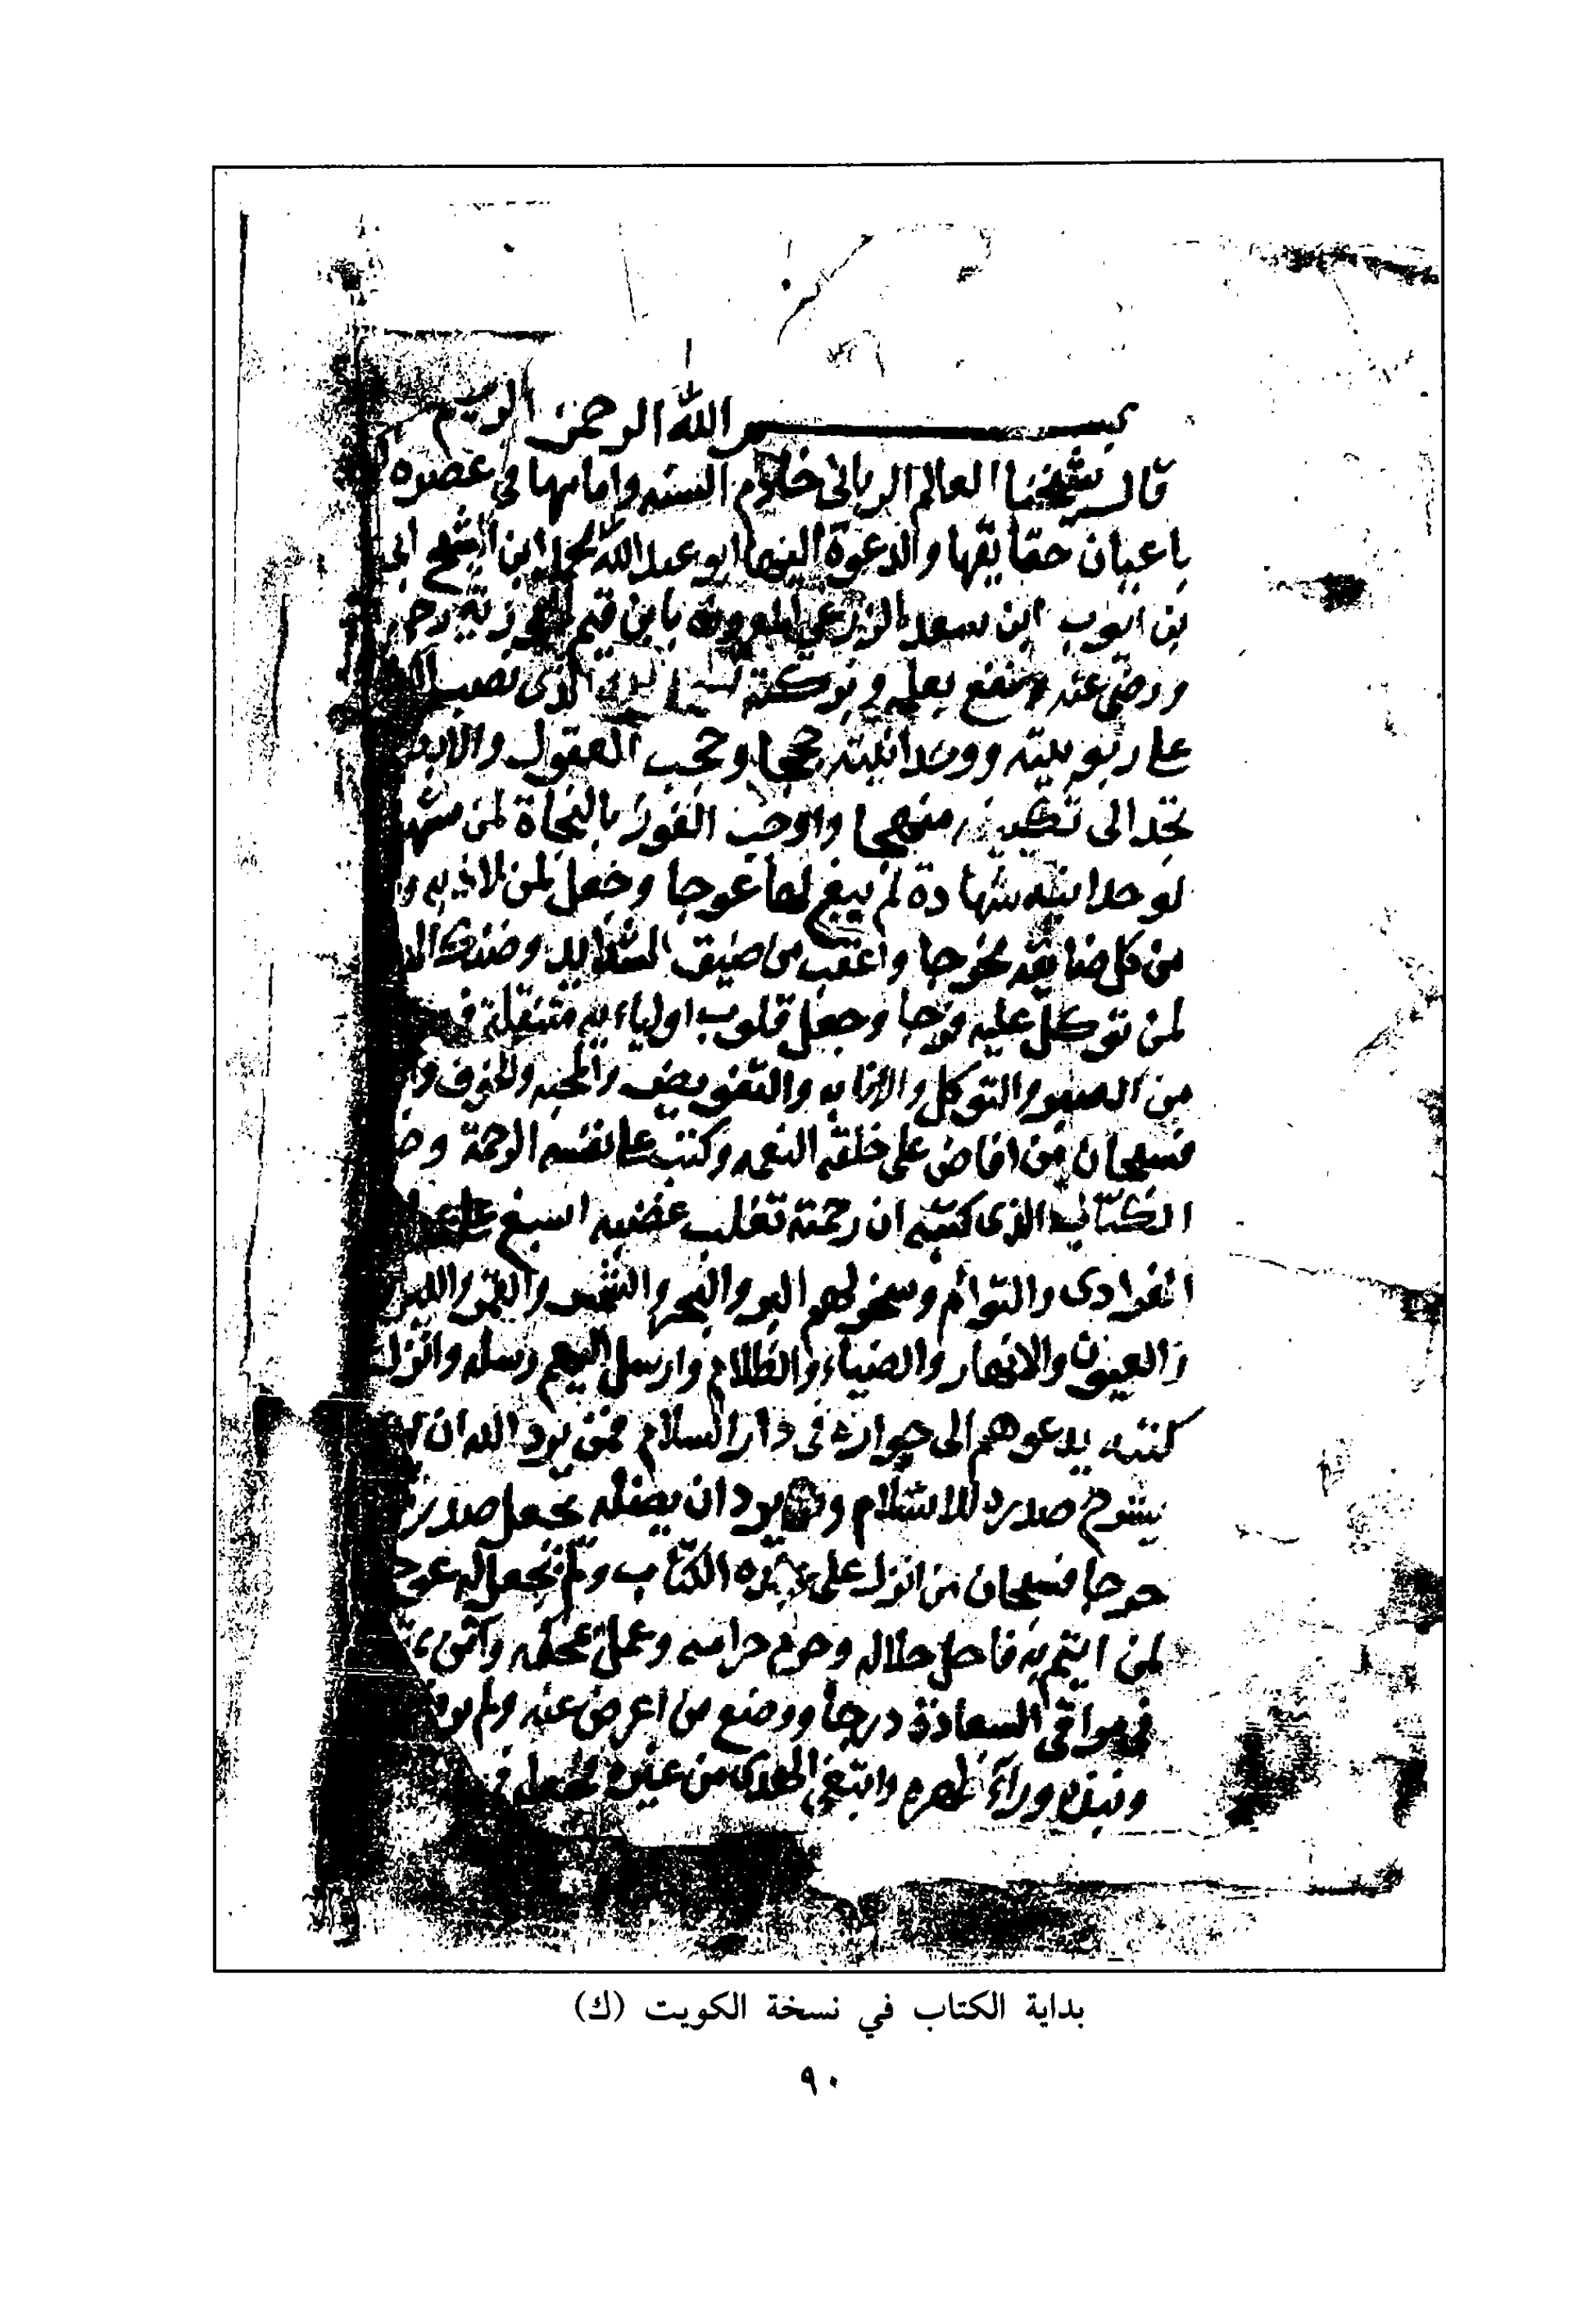 بسم الله الرحمن الرحيم
قال شيخنا العالم الرباني خادم السنه وامامها في عصره
باعيان حقايقها والدعوة اليها ابو عبد الله محمد ابن الشيخ ابي
بن ايوب ابن سعد الزرعي المعروف بابن قيم الجوزية
ورضي عنه ونفع بعلمه وبركته الذي نصب
على ربوبيته ووحدانيته حججا وحجب العقول
تجد الى منهجا واوجب الفوز بالنجاة لمن شهد
لوحدانيته شهادة لم يبغ لها عوجا وجعل لمن لاذ به و
من كل ضايقه مخرجا واعقب من ضيق الشدايد وضنك
لمن توكل عليه فرجا وجعل قلوب اوليايه متنقلة
من الصبر والتوكل والانابه والتفويض والمحبه والخوف
فسبحان من افاض على خلقه النعمه وكتب على نفسه الرحمة و
الكتاب الذي كتبه ان رحمته تغلب غضبه اسبغ على
الفرادى والتوام وسخر لهم البر والبحر والشمس والقمر والليل
والعيون والانهار والضياء والظلام وارسل اليهم رسله وانزل
كتبه يدعوهم الى جواره في دار السلام فمن يرد الله ان
يشرح صدره للاسلام ومن يرد ان يضله يجعل صدره
حرجا فسبحان من انزل على عبده الكتاب ولم يجعل له عوجا
لمن ايتم به فاحل حلاله وحرم حرامه وعمل بمحكمه
في مراقي السعادة درجا ووضع من اعرض عنه ولم
ونبذه وراء ظهره وابتغى الهدى من غيره فجعله
بداية الكتاب في نسخة الكويت (ك)
٩٠